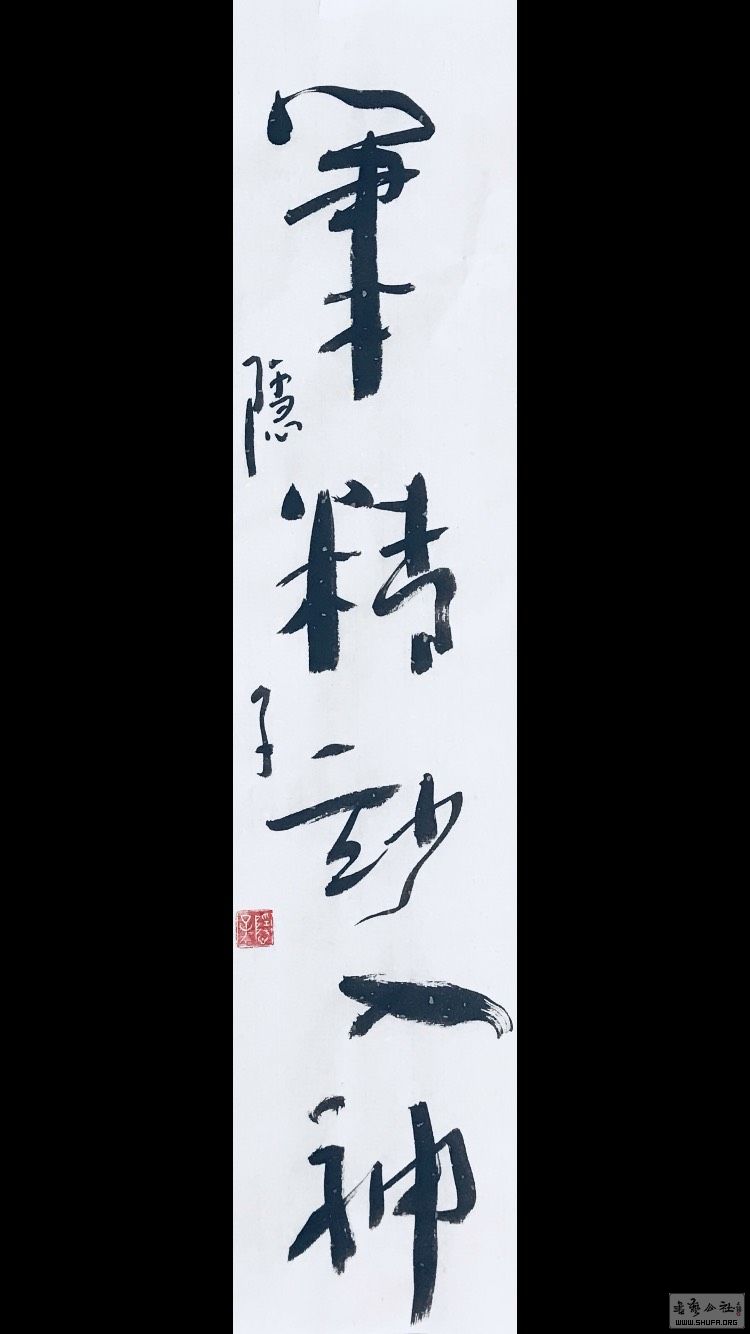 筆精玅入神
隱子
书艺公社
WWW.SHUFA.ORG